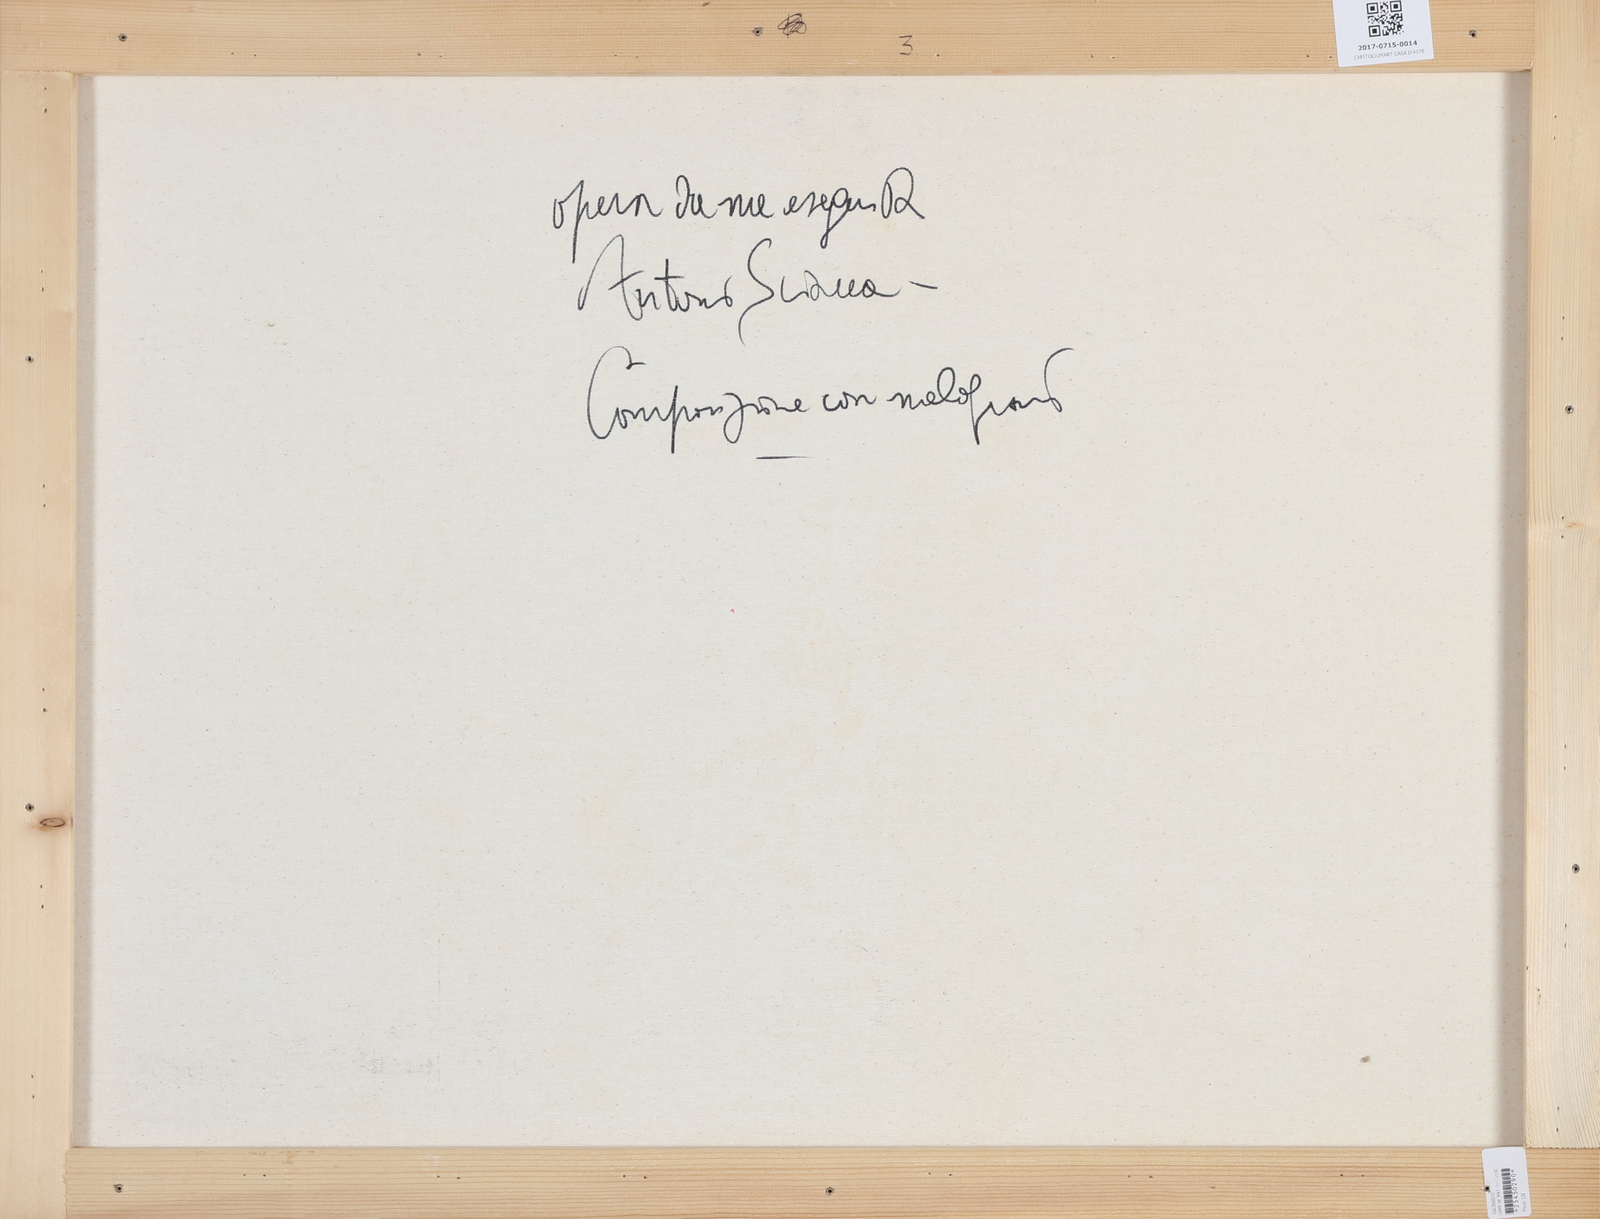 3
2017-0715-0014
CAPITOLIUMART CASA D'ASTE
opera da me eseguita
Antonio Sciacca -
Composizione con melograno